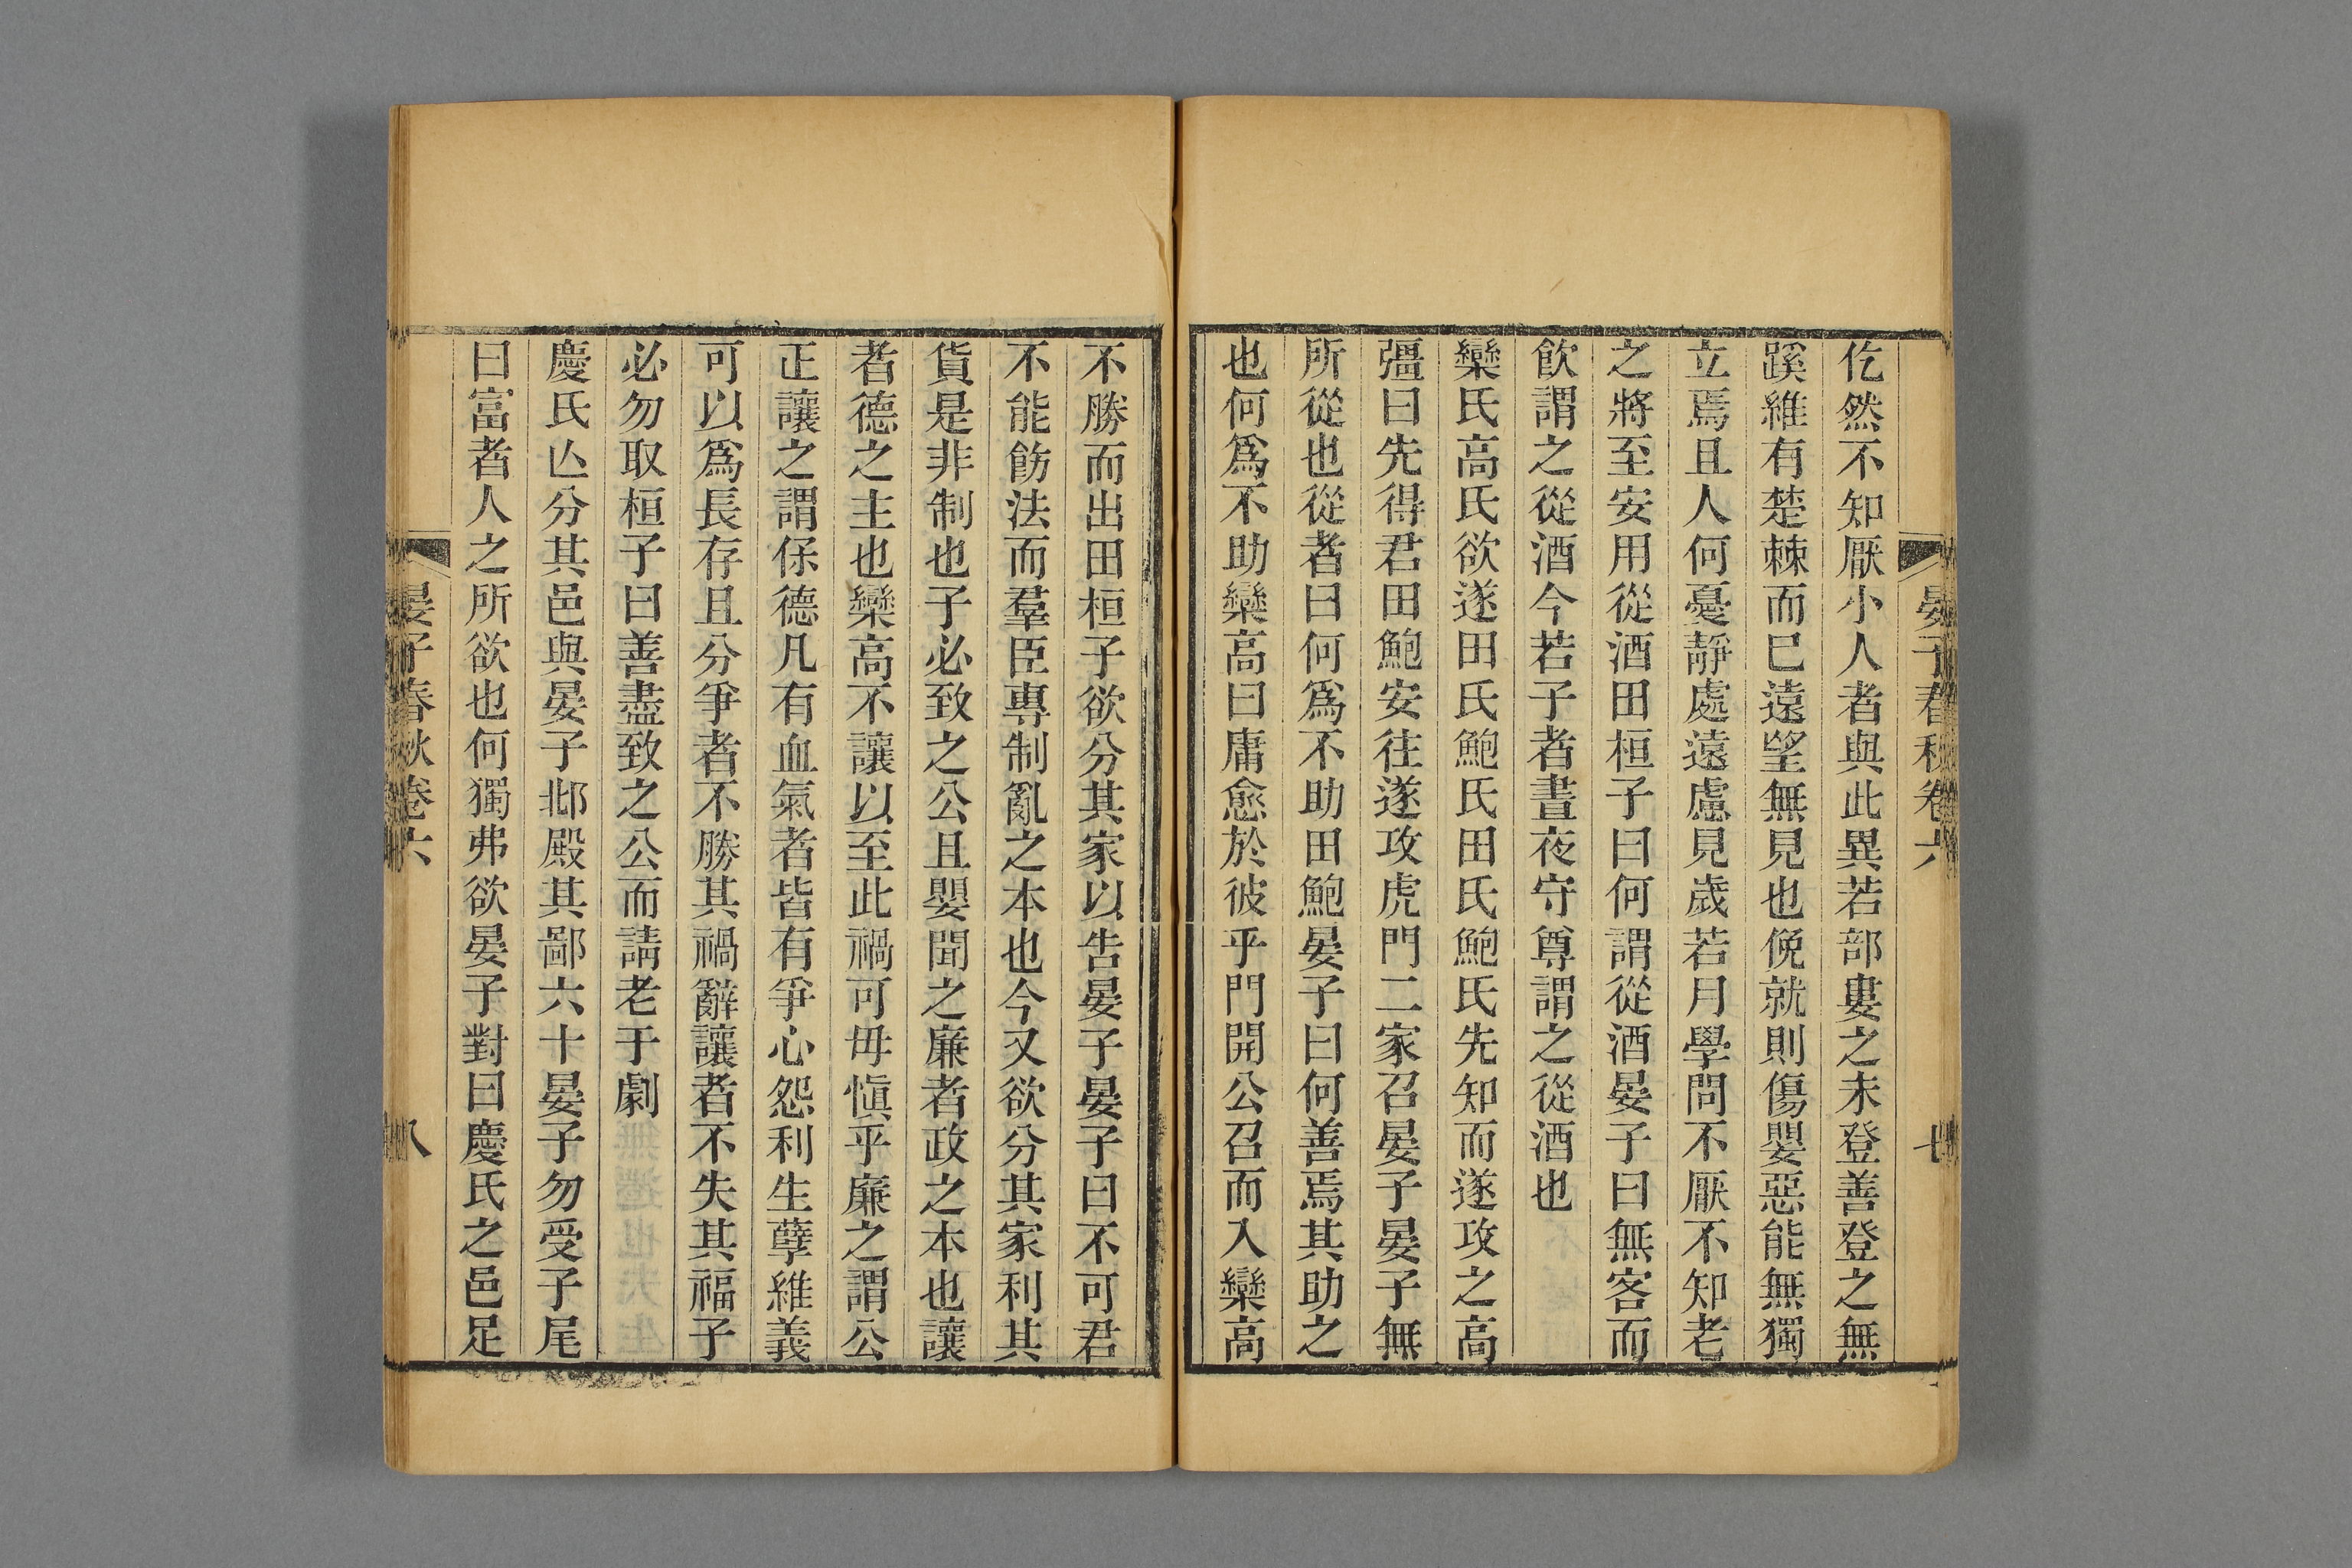 晏子春秋卷六 七
仡然不知厭小人者與此異若部婁之未登善登之無
蹊維有楚棘而已遠望無見也俛就則傷嬰惡能無獨
立焉且人何憂靜處遠慮見歲若月學問不厭不知老
之將至安用從酒田桓子曰何謂從酒晏子曰無客而
飮謂之從酒今若子者晝夜守尊謂之從酒也
欒氏高氏欲逐田氏鮑氏田氏鮑氏先知而遂攻之高
彊曰先得君田鮑安往遂攻虎門二家召晏子晏子無
所從也從者曰何爲不助田鮑晏子曰何善焉其助之
也何爲不助欒高曰庸愈於彼乎門開公召而入欒高
不勝而出田桓子欲分其家以告晏子晏子曰不可君
不能飭法而羣臣專制亂之本也今又欲分其家利其
貨是非制也子必致之公且嬰聞之廉者政之本也讓
者德之主也欒高不讓以至此禍可毋愼乎廉之謂公
正讓之謂保德凡有血氣者皆有爭心怨利生孽維義
可以爲長存且分爭者不勝其禍辭讓者不失其福子
必勿取桓子曰善盡致之公而請老于劇
慶氏亾分其邑與晏子邶殿其鄙六十晏子勿受子尾
曰富者人之所欲也何獨弗欲晏子對曰慶氏之邑足
晏子春秋卷六 八